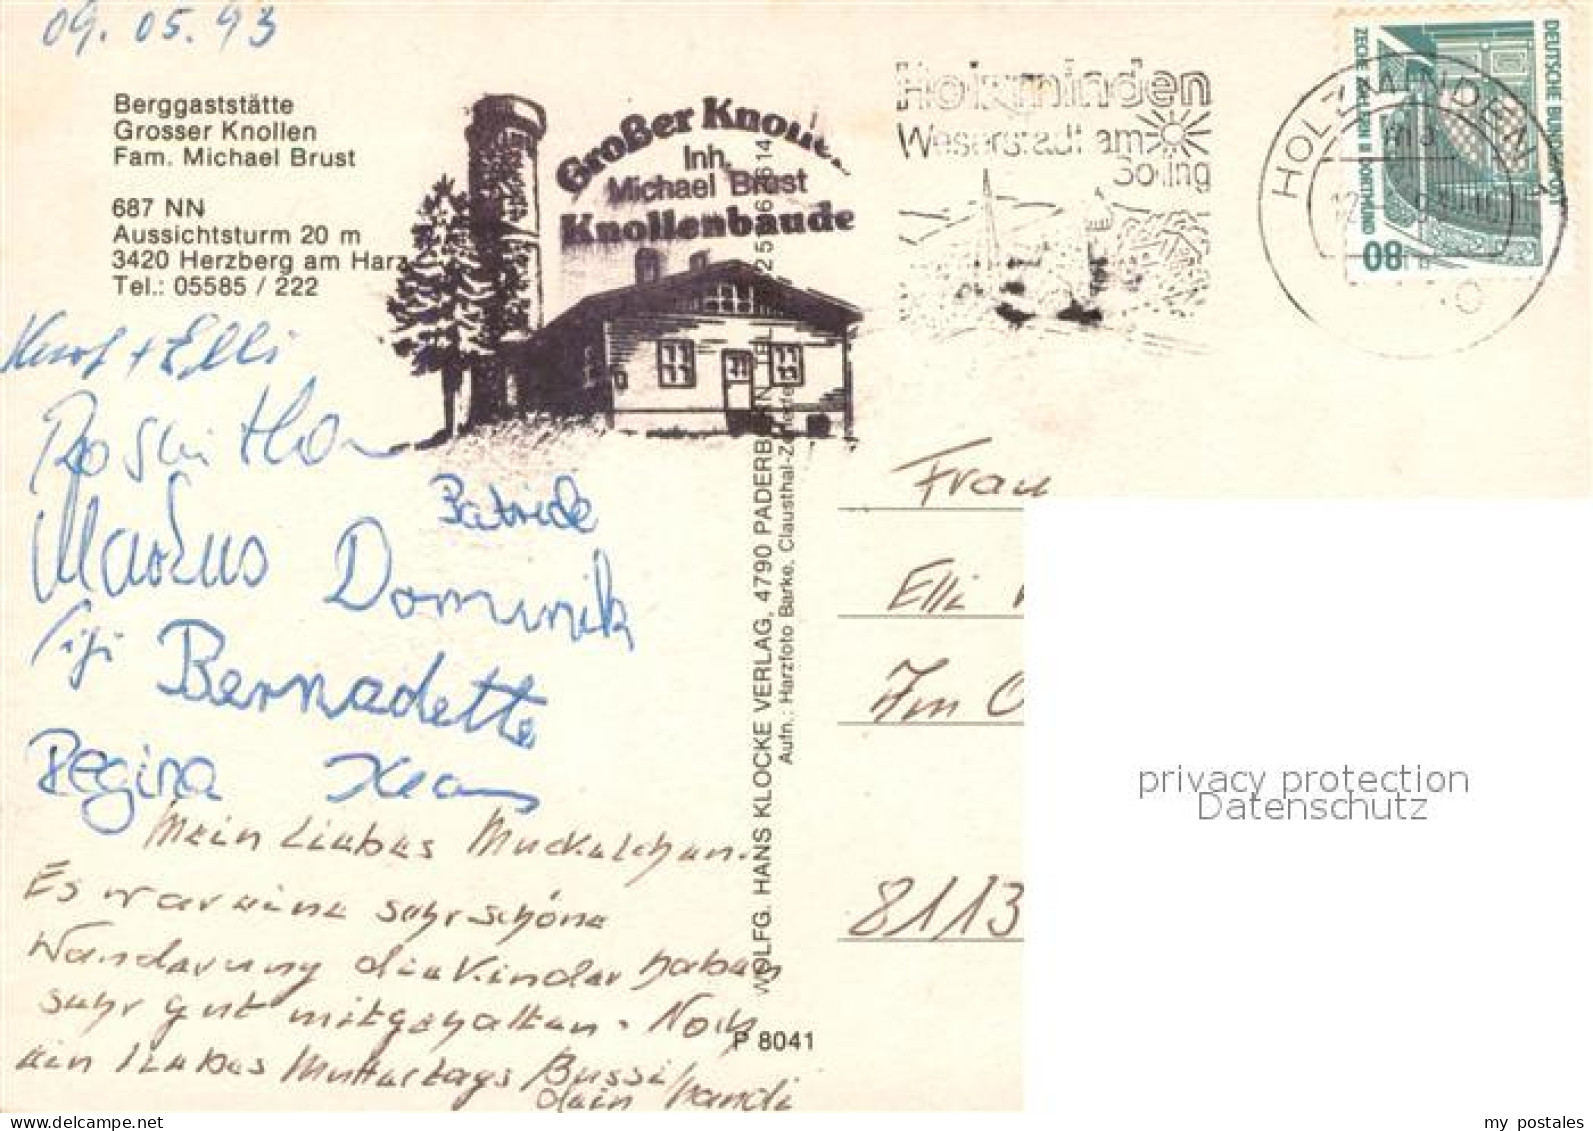 09.05.93
Berggaststätte
Grosser Knollen
Fam. Michael Brust
687 NN
Aussichtsturm 20 m
3420 Herzberg am Harz
Tel.: 05585 / 222
Großer Knollen
Inh.
Michael Brust
Knollenbaude
Holzminden
Weserstadt am
Solling
HOLZMINDEN
DEUTSCHE BUNDESPOST
ZECHE ZOLLERN II DORTMUND
80
Kurt + Elli
Patrick
Markus Dominik
Bernadette
Regina Klaus
Mein liebes Muckelchen.
Es war eine sehr schöne
Wanderung die Kinder haben
sehr gut mitgehalten. Noch
ein liebes Muttertags Bussi
dein
WOLFG. HANS KLOCKE VERLAG, 4790 PADERBORN, TEL.
Aufn.: Harzfoto Barke, Clausthal-Zellerfeld
P 8041
Frau
Elli
Im
8113
privacy protection
Datenschutz
my postales